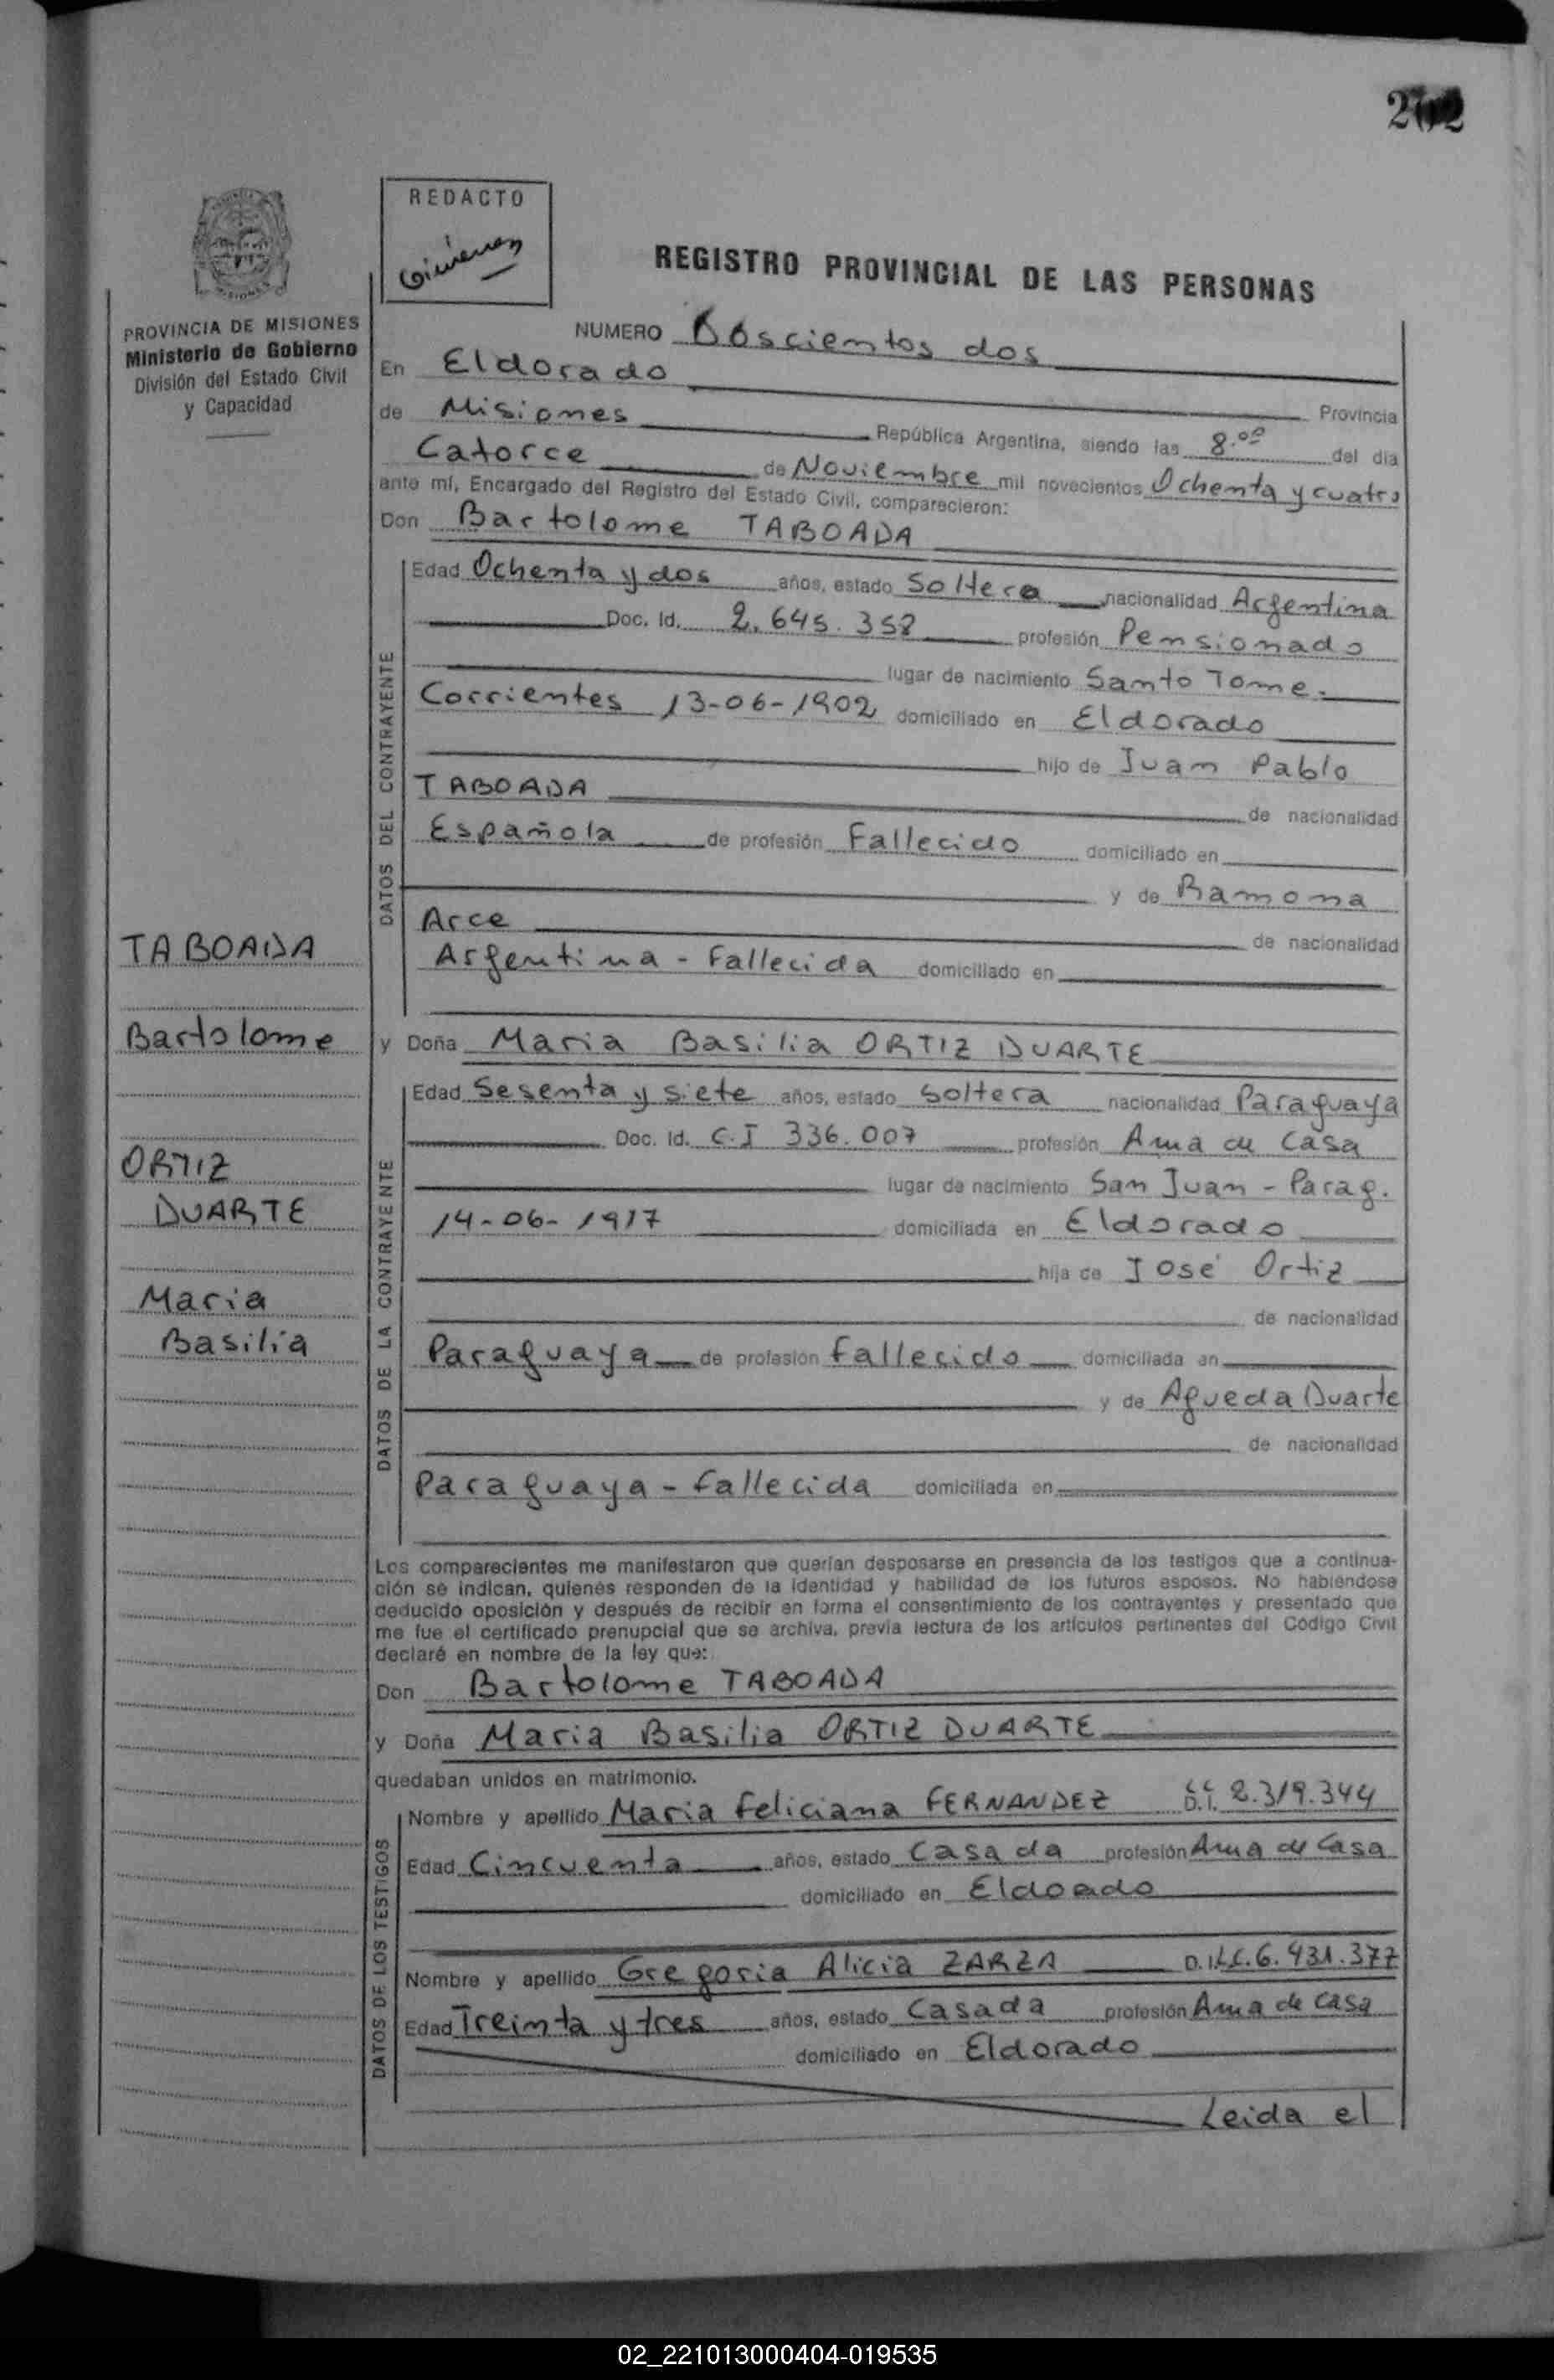 202
REDACTO
Gimenez
REGISTRO PROVINCIAL DE LAS PERSONAS
PROVINCIA DE MISIONES
Ministerio de Gobierno
División del Estado Civil
y Capacidad
NUMERO Doscientos dos
En Eldorado Provincia
de Misiones República Argentina, siendo las 8.00 del día
Catorce de Noviembre mil novecientos Ochenta y cuatro
ante mí, Encargado del Registro del Estado Civil, comparecieron:
Don Bartolome TABOADA
DATOS DEL CONTRAYENTE
Edad Ochenta y dos años, estado Soltero nacionalidad Argentina
Doc. Id. 2.645.358 profesión Pensionado
lugar de nacimiento Santo Tome.
Corrientes 13-06-1902 domiciliado en Eldorado
hijo de Juan Pablo
TABOADA de nacionalidad
Española de profesión Fallecido domiciliado en
y de Ramona
Arce de nacionalidad
Argentina - Fallecida domiciliado en
TABOADA
Bartolome
ORTIZ
DUARTE
Maria
Basilia
y Doña Maria Basilia ORTIZ DUARTE
DATOS DE LA CONTRAYENTE
Edad Sesenta y siete años, estado Soltera nacionalidad Paraguaya
Doc. Id. C.I 336.007 profesión Ama de Casa
lugar de nacimiento San Juan - Parag.
14-06-1917 domiciliada en Eldorado
hija de José Ortiz
de nacionalidad
Paraguaya de profesión fallecido domiciliada en
y de Agueda Duarte
de nacionalidad
Paraguaya - fallecida domiciliada en
Los comparecientes me manifestaron que querían desposarse en presencia de los testigos que a continua-
ción se indican, quienes responden de la identidad y habilidad de los futuros esposos. No habiéndose
deducido oposición y después de recibir en forma el consentimiento de los contrayentes y presentado que
me fue el certificado prenupcial que se archiva, previa lectura de los artículos pertinentes del Código Civil
declaré en nombre de la ley que:
Don Bartolome TABOADA
y Doña Maria Basilia ORTIZ DUARTE
quedaban unidos en matrimonio.
DATOS DE LOS TESTIGOS
Nombre y apellido Maria Feliciana FERNANDEZ L.C. D.I. 2.319.344
Edad Cincuenta años, estado Casada profesión Ama de Casa
domiciliado en Eldoado
Nombre y apellido Gregoria Alicia ZARZA D.I. L.C. 6.431.377
Edad Treinta y tres años, estado Casada profesión Ama de casa
domiciliado en Eldorado
Leida el
02_221013000404-019535